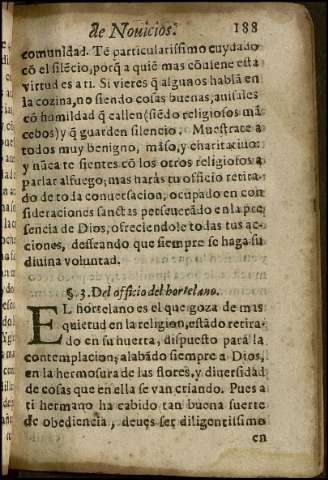 de Novicios. 188
comunidad. Tē particularissimo cuydado
cō el silēcio, porq̄ a quiē mas cōuiene esta
virtud es a ti. Si vieres q̄ algunos hablā en
la cozina, no siendo cosas buenas, auisales
cō humildad q̄ callen (siēdo religiosos mā
cebos) y q̄ guarden silencio. Muestrate a
todos muy benigno, māso, y charitatiuo:
y nūca te sientes cō los otros religiosos a
parlar al fuego, mas harás tu officio retira-
do de toda conuersacion, ocupado en con
sideraciones sanctas perseuerādo en la pre
sencia de Dios, ofreciendole todas tus ac-
ciones, desseando que siempre se haga su
diuina voluntad.
§. 3. Del officio del hortelano.
EL hortelano es el que goza de mas
quietud en la religion, estādo retira-
do en su huerta, dispuesto para la
contemplacion, alabādo siempre a Dios,
en la hermosura de las flores, y diuersidad
de cosas que en ella se van criando. Pues a
ti hermano ha cabido tan buena suerte
de obediencia, deues ser diligentissimo
en